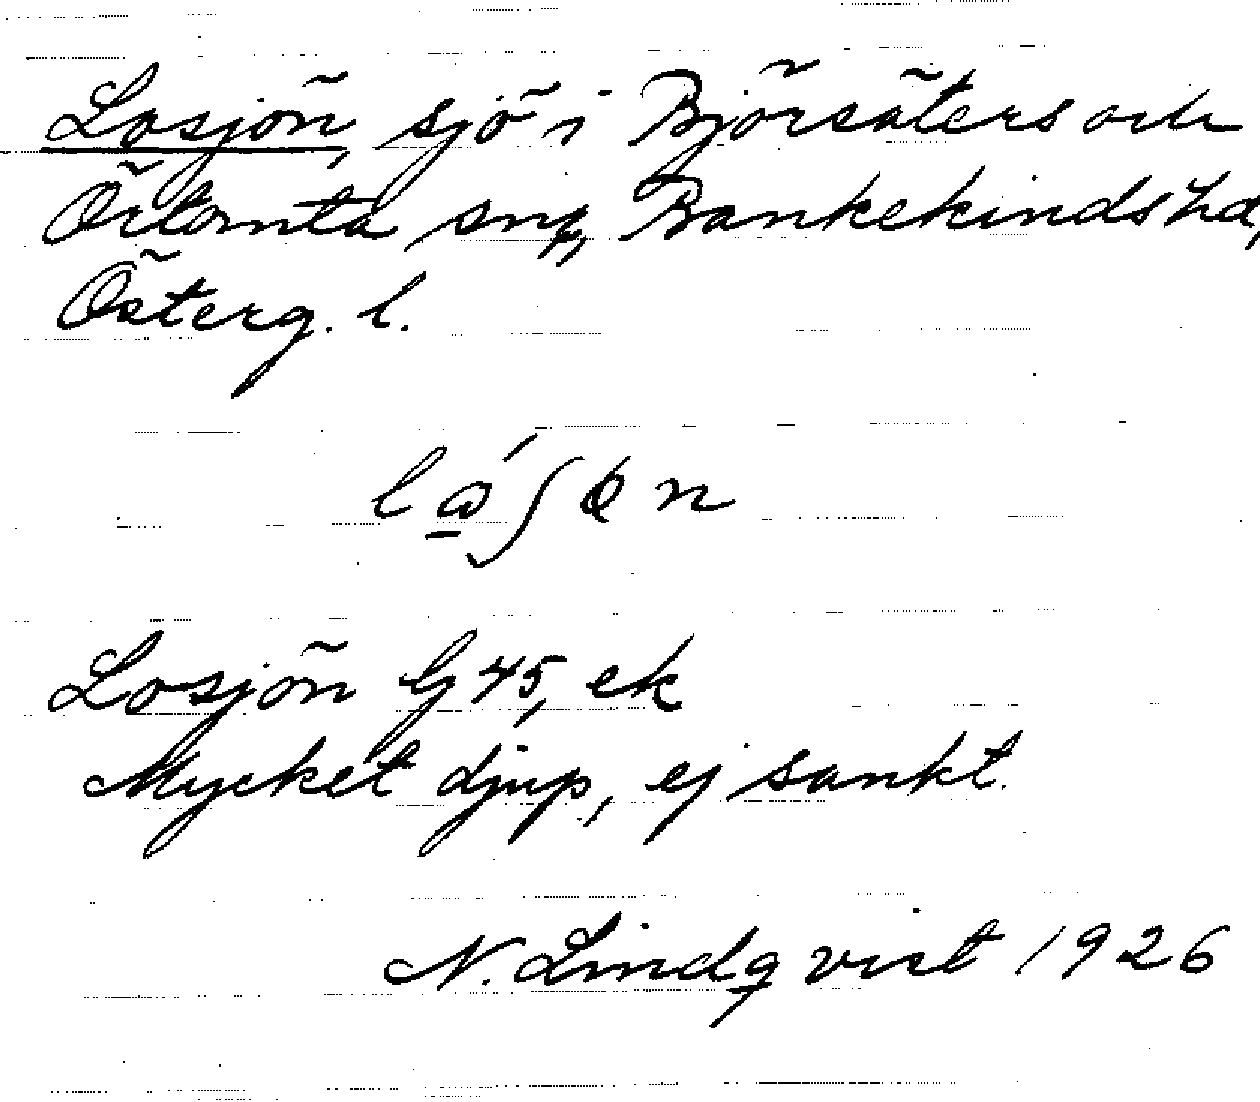 Losjön, sjö i Björsäters och
Örtomta snr, Bankekinds hd,
Österg. l.
Losjön G 45, ek
Mycket djup, ej sankt.
N. Lindqvist 1926